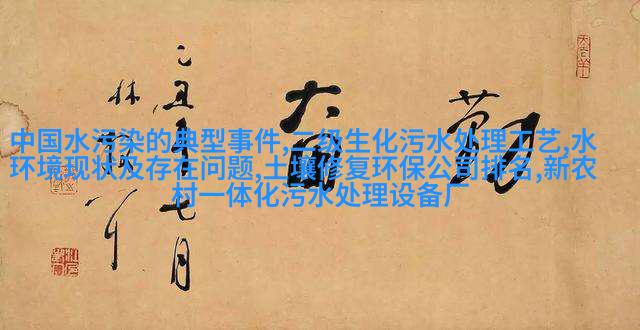 中国水污染的典型事件,二级生化污水处理工艺,水
环境现状及存在问题,土壤修复环保公司排名,新农
村一体化污水处理设备厂
勤
大
乙丑年七月
林散耳